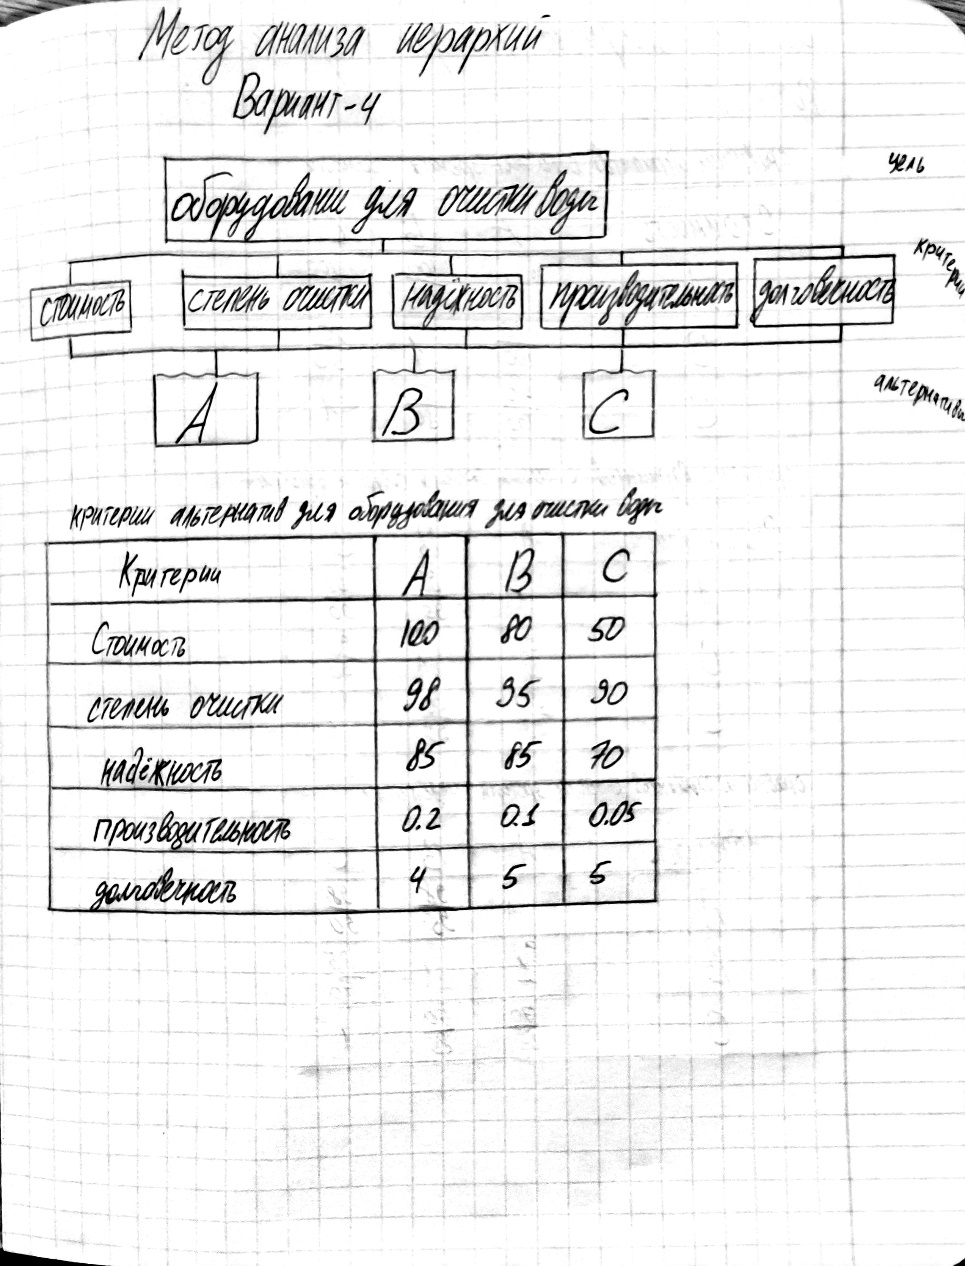 Метод анализа иерархий
Вариант-4
оборудование для очистки воды
цель
стоимость степень очистки надёжность производительность долговечность
критерии
A B C
альтернативы
критерии альтернатив для оборудования для очистки воды
Критерии A B C
Стоимость 100 80 50
степень очистки 98 95 90
надёжность 85 85 70
производительность 0.2 0.1 0.05
долговечность 4 5 5